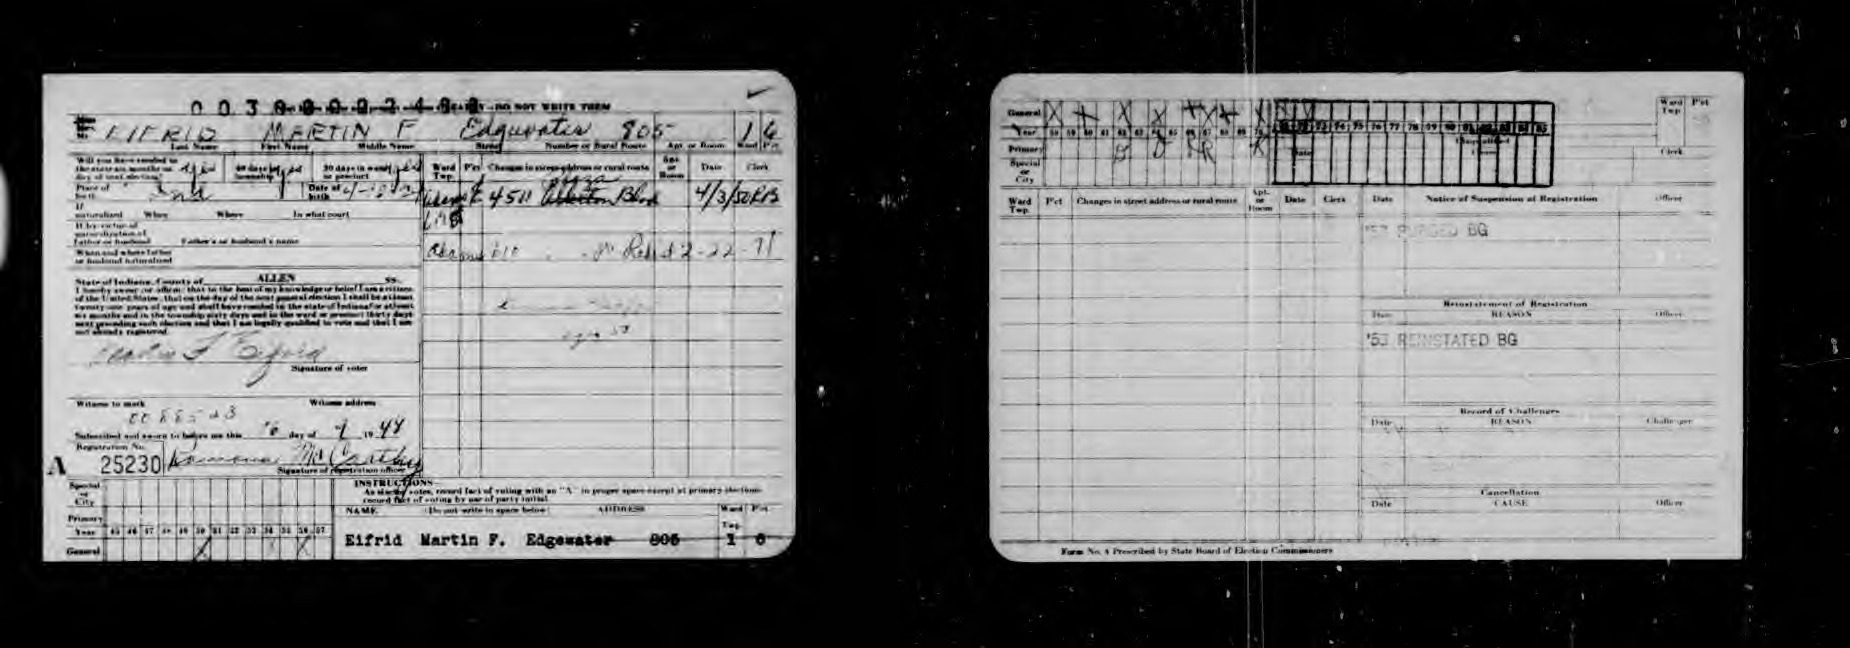 DO NOT WRITE THEM
EIFRID MARTIN F Edgewater 805 1 6
Last Name First Name Middle Name Street Number or Rural Route Apt or Room Ward P'ct
Will you have resided in the state six months on day of next election? yes 60 days in township yes 30 days in ward or precinct yes
Ward Twp. P'ct Changes in street address or rural route Apt or Room Date Clerk
Place of birth Ind Date of birth
4511 Blvd 4/3/50 RB
If naturalized When Where In what court
If by virtue of naturalization of Father or husband Father's or husband's name
When and where father or husband naturalized
Adams 2-22-71
State of Indiana, County of ALLEN ss.
I hereby swear (or affirm) that to the best of my knowledge or belief I am a citizen
of the United States, that on the day of the next general election I shall be at least
twenty-one years of age and shall have resided in the state of Indiana for at least
six months and in the township sixty days and in the ward or precinct thirty days
next preceding such election and that I am legally qualified to vote and that I am
not already registered.
Martin F Eifrid
Signature of voter
Witness to mark Witness address
Subscribed and sworn to before me this day of 19 44
Registration No.
A 25230 Ramona McCarthy
Signature of registration officer
Special or City
Primary
Year 45 46 47 48 49 50 51 52 53 54 55 56 57
General X X X
INSTRUCTIONS
As elector votes, record fact of voting with an "X" in proper space except at primary elections
record fact of voting by use of party initial.
NAME (Do not write in space below) ADDRESS Ward Twp. P'ct
Eifrid Martin F. Edgewater 805 1 6
General X X X X X X X X
Year 58 59 60 61 62 63 64 65 66 67 68 69 70 71 72 73 74 75 76 77 78 79 80 81 82 83 84 85
Primary R R
Special or City
Ward Twp. P'ct
Clerk
Ward Twp. P'ct Changes in street address or rural route Apt. or Room Date Clerk Date Notice of Suspension of Registration Officer
'53 PURGED BG
Reinstatement of Registration
Date REASON Officer
'53 REINSTATED BG
Record of Challenges
Date REASON Challenger
Cancellation
Date CAUSE Officer
Form No. 4 Prescribed by State Board of Election Commissioners